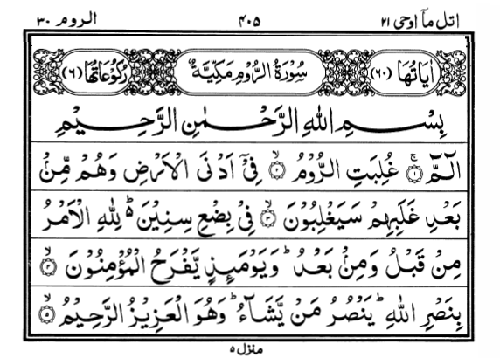 اتل مآ اوحی ۲۱ ۴۰۵ الروم ۳۰
اٰیَاتُهَا (۶۰) سُوْرَةُ الرُّوْمِ مَکِّیَّةٌ رُکُوْعَاتُهَا (۶)
بِسْمِ اللهِ الرَّحْمٰنِ الرَّحِیْمِ
الٓمّٓ ۚ﴿۱﴾ غُلِبَتِ الرُّوْمُ ۙ﴿۲﴾ فِیْۤ اَدْنَی الْاَرْضِ وَهُمْ مِّنْۢ
بَعْدِ غَلَبِهِمْ سَیَغْلِبُوْنَ ۙ﴿۳﴾ فِیْ بِضْعِ سِنِیْنَ ؕ۬ لِلّٰهِ الْاَمْرُ
مِنْ قَبْلُ وَمِنْۢ بَعْدُ ؕ وَیَوْمَئِذٍ یَّفْرَحُ الْمُؤْمِنُوْنَ ۙ﴿۴﴾
بِنَصْرِ اللهِ ؕ یَنْصُرُ مَنْ یَّشَآءُ ؕ وَهُوَ الْعَزِیْزُ الرَّحِیْمُ ۙ﴿۵﴾
منزل ۵